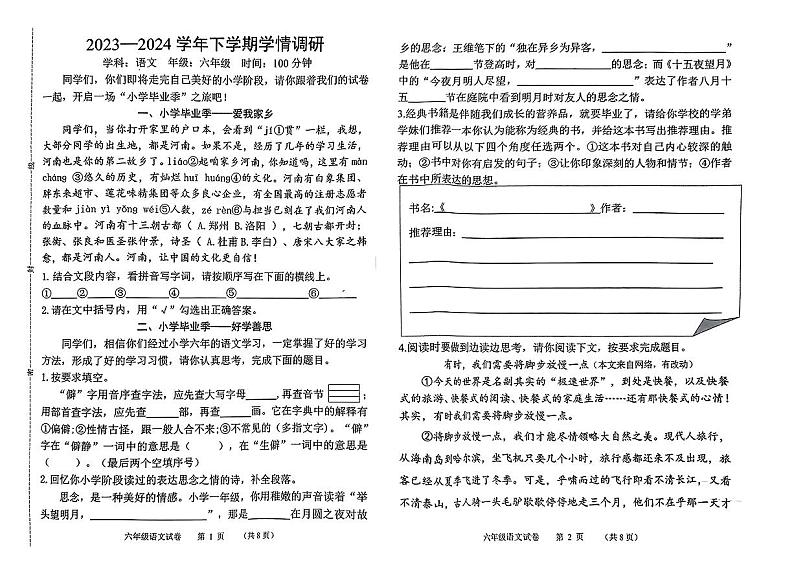 2023—2024 学年下学期学情调研
学科：语文 年级：六年级 时间：100 分钟
同学们，你们即将走完自己美好的小学阶段，请你跟着我们的试卷
一起，开启一场“小学毕业季”之旅吧！
一、小学毕业季——爱我家乡
同学们，当你打开家里的户口本，会看到“jí①贯”一栏，我想，
大部分同学的出生地，都是河南。如果不是，经历了几年的学习生活，
河南也是你的第二故乡了。liáo②起咱家乡河南，你知道吗，这里有 màn
cháng ③悠久的历史，有灿烂 huī huáng④的文化。河南有白象集团、
胖东来超市、莲花味精集团等众多良心企业，有全国最高的注册志愿者
数量和 jiàn yì yǒng wéi⑤人数，zé rèn⑥与担当已刻在了我们河南人
的血脉中。河南有十三朝古都（ A.郑州 B.洛阳 ），七朝古都开封；
张衡、张良和医圣张仲景，诗圣（ A.杜甫 B.李白）、唐宋八大家之韩
愈，都是河南人。河南，让中国的文化更自信！
1. 结合文段内容，看拼音写字词，请按顺序写在下面的横线上。
①____ ②____ ③______ ④______ ⑤__________ ⑥______
2.请在文中括号内，用“√”勾选出正确答案。
二、小学毕业季——好学善思
同学们，相信你们经过小学六年的语文学习，一定掌握了好的学习
方法，形成了好的学习习惯，请你认真思考，完成下面的题目。
1.按要求填空。
“僻”字用音序查字法，应先查大写字母_____，再查音节 ；
用部首查字法，应先查_____部，再查_____画。它在字典中的解释有
①偏僻;②性情古怪，跟一般人合不来;③不常见的（多指文字）。“僻”
字在“僻静”一词中的意思是（ ），在“生僻”一词中的意思是
（ ）。（最后两个空填序号）
2.回忆你小学阶段读过的表达思念之情的诗，补全段落。
思念，是一种美好的情感。小学一年级，你用稚嫩的声音读着“举
头望明月，________________”，那是______在月圆之夜对故
六年级语文试卷 第 1 页 （共8页）
乡的思念；王维笔下的“独在异乡为异客，________________”
是他在______节登高时，对__________的思念；而《十五夜望月》
中的“今夜月明人尽望，________________”表达了作者八月十
五_____节在庭院中看到明月时对友人的思念之情。
3.经典书籍是伴随我们成长的营养品，就要毕业了，请给你学校的学弟
学妹们推荐一本你认为能称为经典的书，并给这本书写出推荐理由。推
荐理由可以从以下四个角度任选两个。①这本书对自己内心较深的触
动；②书中对你有启发的句子；③让你印象深刻的人物和情节；④作者
在书中所表达的思想。
书名:《 》作者：
推荐理由：
4.阅读时要做到边读边思考，请你阅读下文，按要求完成题目。
有时，我们需要将脚步放慢一点（本文来自网络，有改动）
①今天的世界是名副其实的“极速世界”，到处是快餐，以及快餐
式的旅游、快餐式的阅读、快餐式的家庭生活……还有那快餐式的心情！
其实，有时我们需要将脚步放慢一点。
②将脚步放慢一点，我们才能尽情领略大自然之美。现代人旅行，
从海南岛到哈尔滨，坐飞机只要几个小时，旅行感都还来不及出现，旅
客已经从夏季飞进了冬季。可是，乎啸而过的飞行即看不清长江，又看
不清泰山，古人骑一头毛驴歇歇停停地走三个月，他们不在乎那一天才
六年级语文试卷 第 2 页 （共8页）